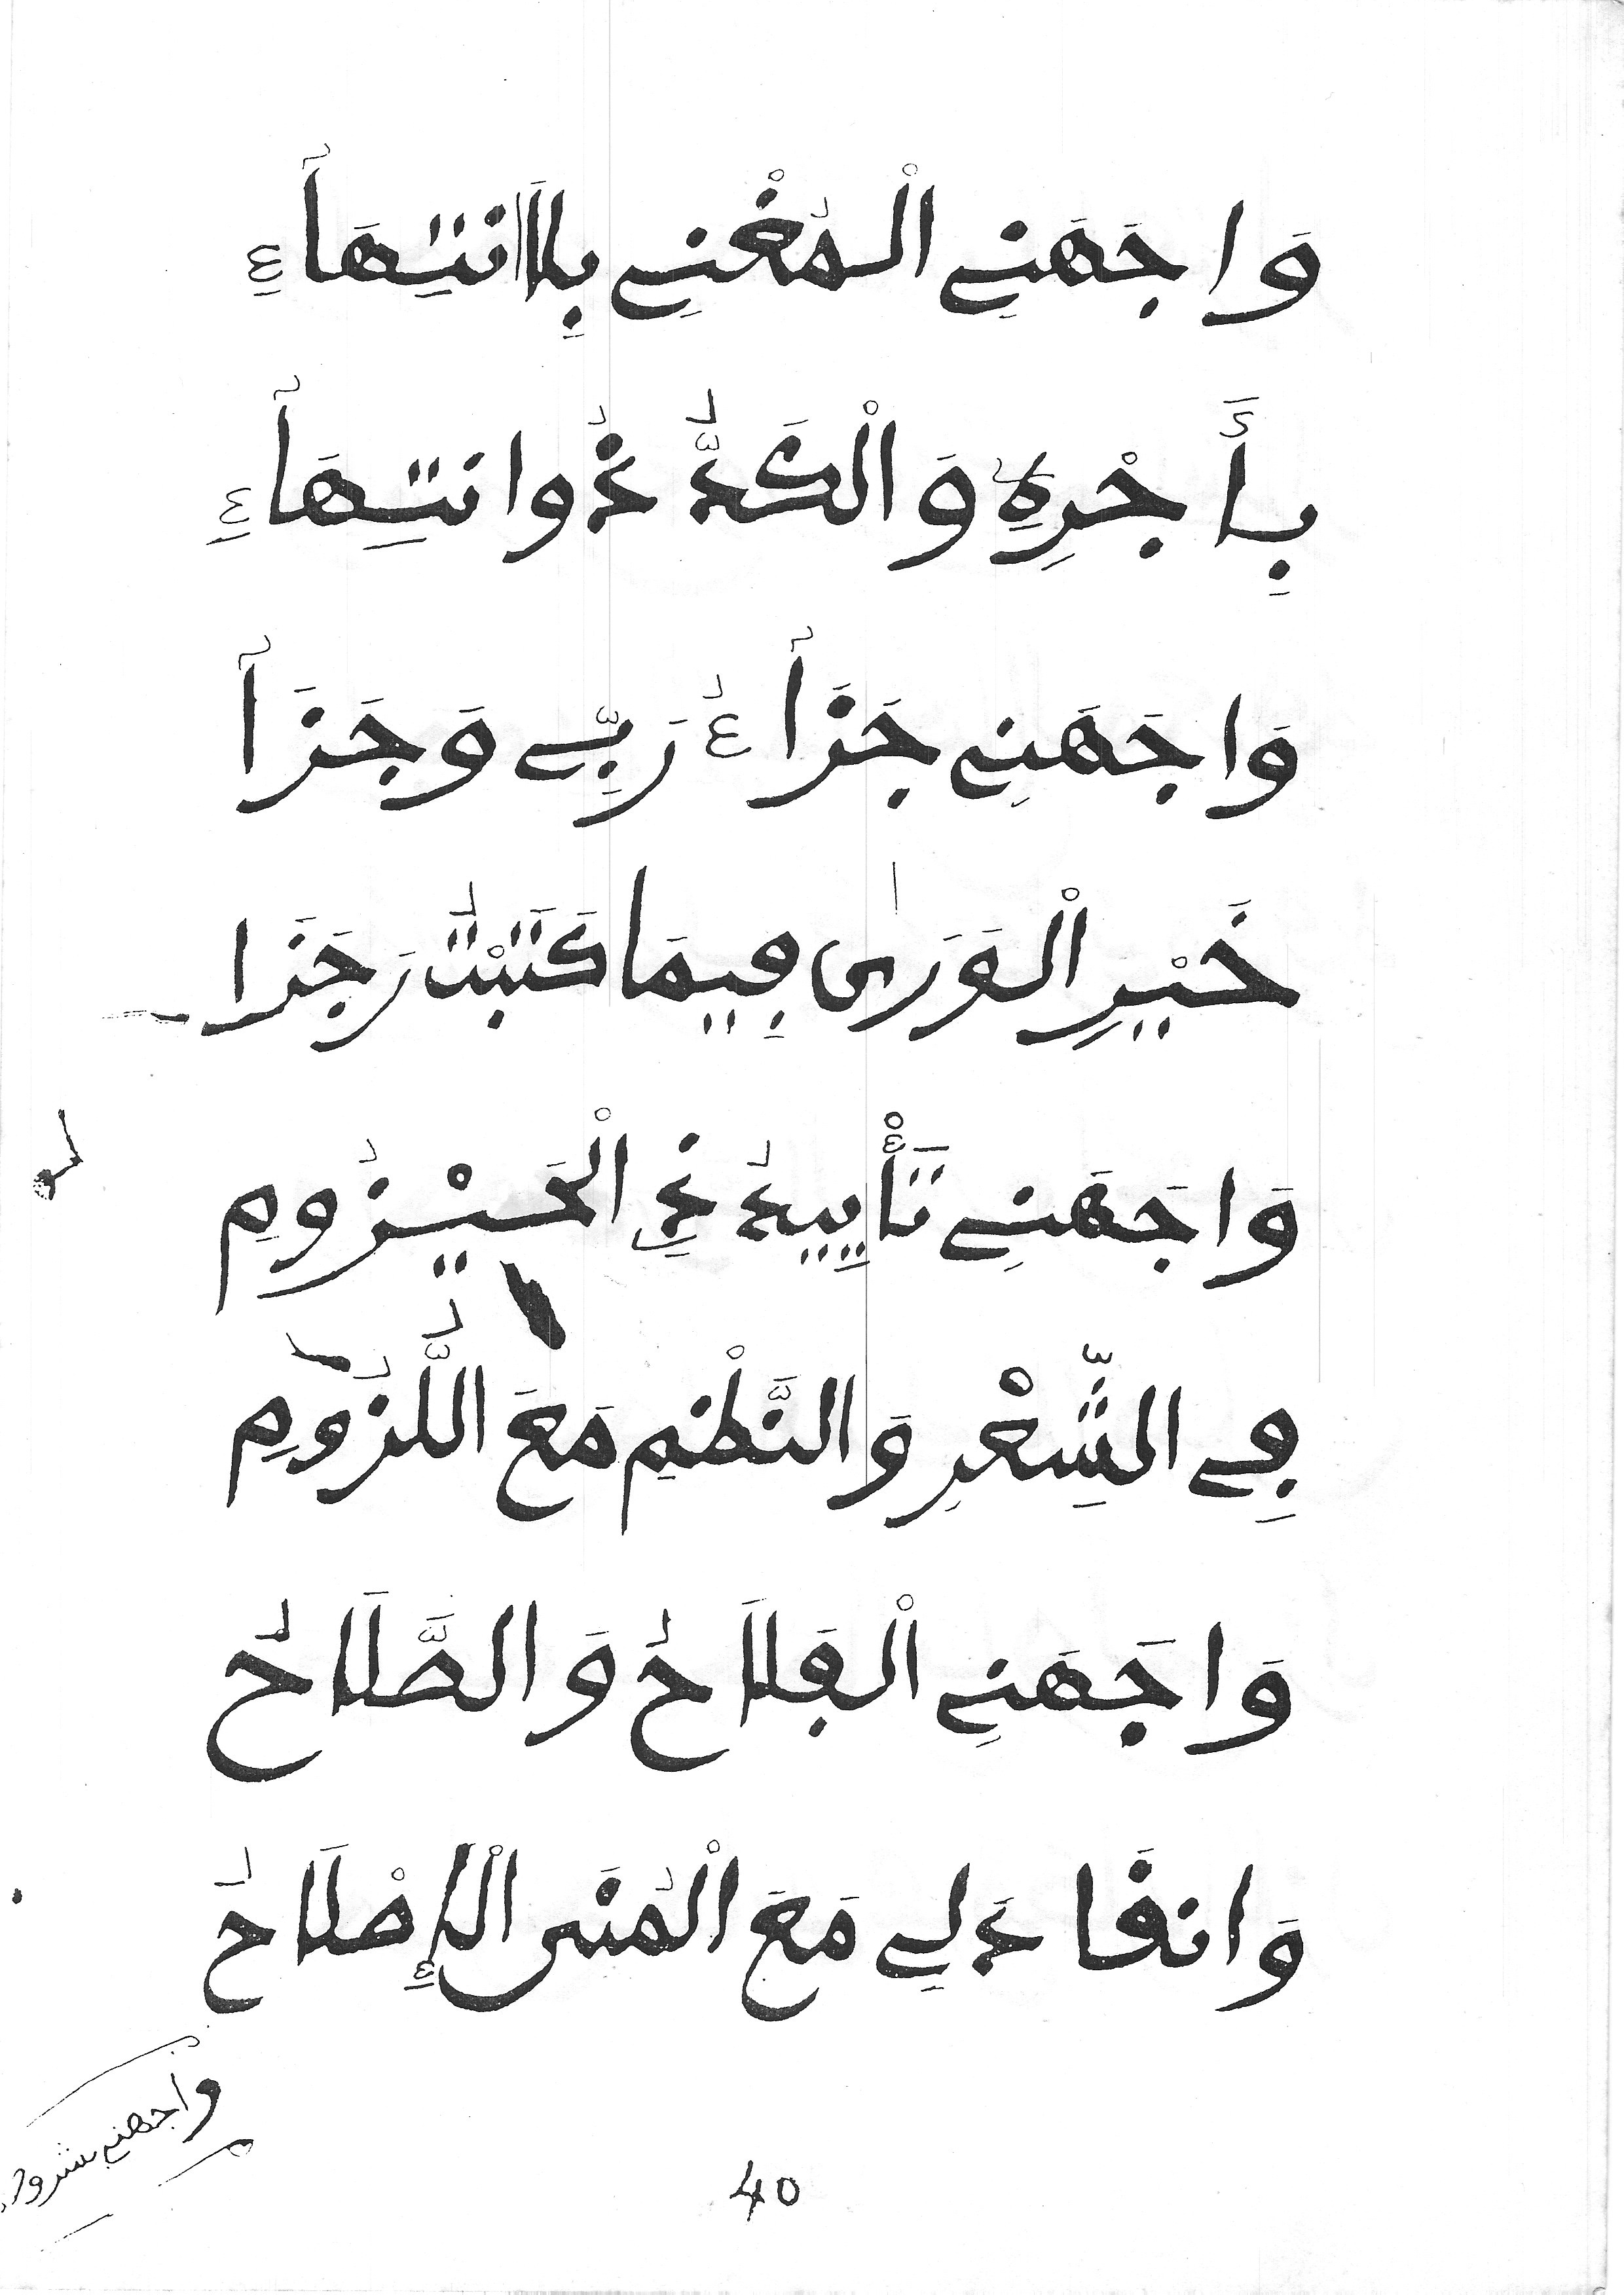 وَاجَهَنِي الْمُغْنِي بِلَا انتِهَاءِ
بِأَجْرِهِ وَالْكَدُّ ذُو انتِهَاءِ
وَاجَهَنِي جَزَاءُ رَبِّي وَجَزَا
خَيْرِ الْوَرَىٰ فِيمَا كَتَبْتُ رَجَزَا
وَاجَهَنِي تَأْيِيدُ ذِي الْحَيْزُومِ
فِي الشِّعْرِ وَالنَّظْمِ مَعَ اللُّزُومِ
وَاجَهَنِي الْفَلَاحُ وَالصَّلَاحُ
وَانقَادَ لِي مَعَ الْمُنَى الْإِصْلَاحُ
واجهني
40